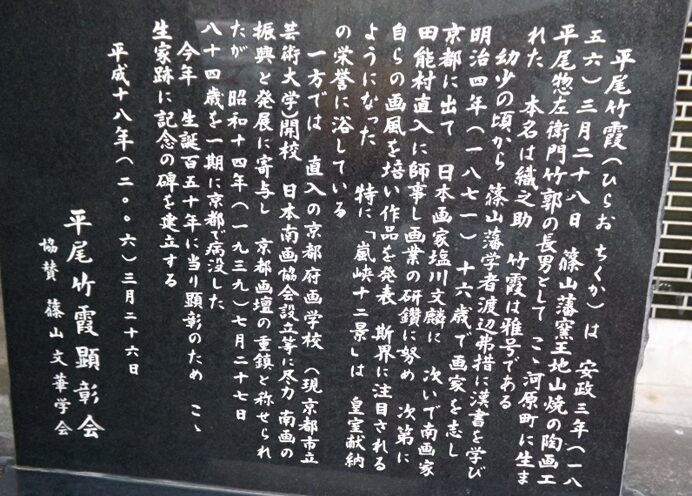 平尾竹霞(ひらお ちくか)は 安政三年(一八
五六)三月二十八日 篠山藩窯王地山焼の陶画工
平尾惣左衛門竹郭の長男として こゝ河原町に生ま
れた 本名は織之助 竹霞は雅号である
幼少の頃から 篠山藩学者渡辺弗措に漢書を学び
明治四年(一八七一) 十六歳で画家を志し
京都に出て 日本画家塩川文麟に 次いで南画家
田能村直入に師事し画業の研鑽に努め 次第に
自らの画風を培い作品を発表 斯界に注目される
ようになった 特に「嵐峡十二景」は 皇室献納
の栄誉に浴している
一方では 直入の京都府画学校(現京都市立
芸術大学)開校 日本南画協会設立等に尽力 南画の
振興と発展に寄与し 京都画壇の重鎮と称せられ
たが 昭和十四年(一九三九)七月二十七日
八十四歳を一期に京都で病没した
今年 生誕百五十年に当り顕彰のため こゝ
生家跡に記念の碑を建立する
平成十八年(二〇〇六)三月二十六日
平尾竹霞顕彰会
協賛 篠山文華学会